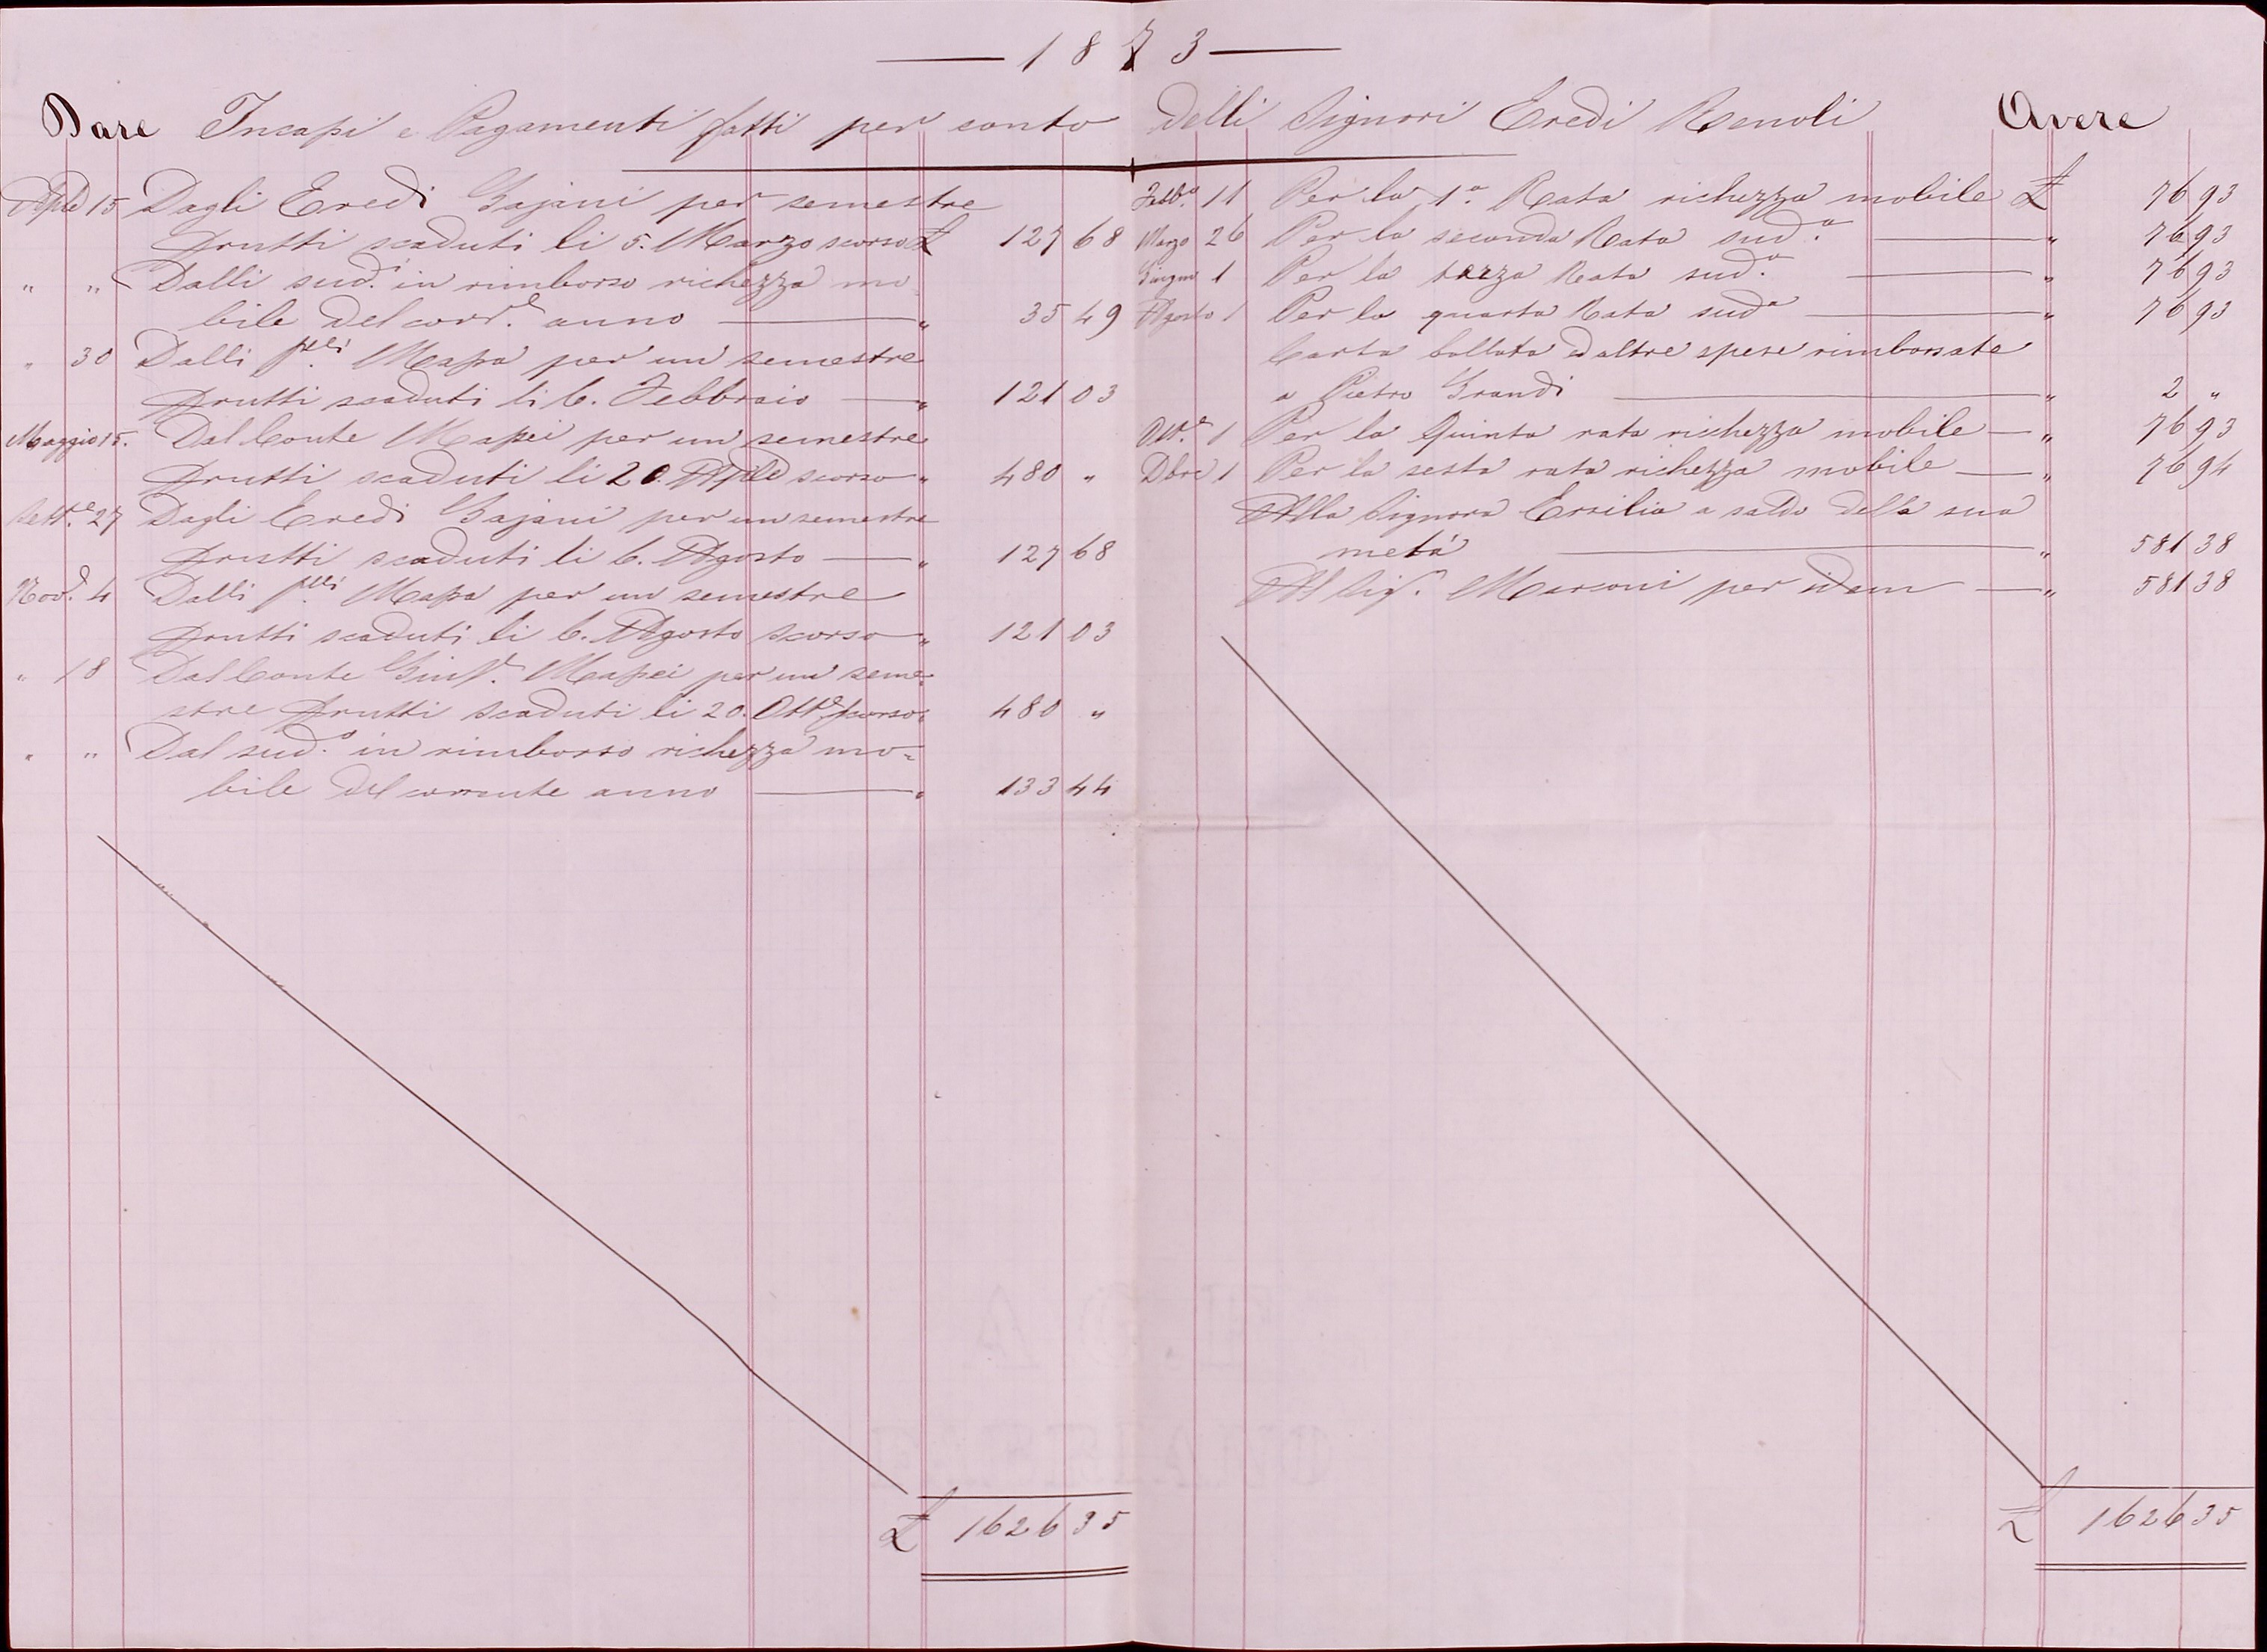 1873
Dare Incassi e Pagamenti fatti per conto delli Signori Eredi Renoli Avere
Aple 15 Dagli Eredi Bajani per semestre
frutti scaduti li 5. Marzo scorso £ 127 68
" " Dalli sud.i in rimborso richezza mo
bile del corr.e anno " 35 49
" 30 Dalli f.lli Massa per un semestre
frutti scaduti li 6. Febbraio " 121 03
Maggio 15. Dal Conte Massei per un semestre
frutti scaduti li 20. Aple scorso " 480 "
Sett.e 27 Dagli Eredi Bajani per un semestre
frutti scaduti li 6. Agosto " 127 68
Nov.e 4 Dalli f.lli Massa per un semestre
frutti scaduti li 6. Agosto scorso " 121 03
" 18 Dal Conte Gius.e Massei per un seme=
stre frutti scaduti li 20. Ott.e scorso " 480 "
" " Dal sud.o in rimborso richezza mo=
bile del corrente anno " 133 44
£ 1626 35
Febb.o 11 Per la 1.a Rata richezza mobile £ 76 93
Marzo 26 Per la seconda Rata sud.a " 76 93
Giugno 1 Per la terza Rata sud.a " 76 93
Agosto 1 Per la quarta Rata sud.a " 76 93
Carta bollata ed altre spese rimborsate
a Pietro Grandi " 2 "
Ott.e 1 Per la Quinta rata richezza mobile " 76 93
Dbre 1 Per la sesta rata richezza mobile " 76 94
Alla Signora Ersilia a saldo della sua
metà " 581 38
Al Sig.r Marconi per idem " 581 38
£ 1626 35